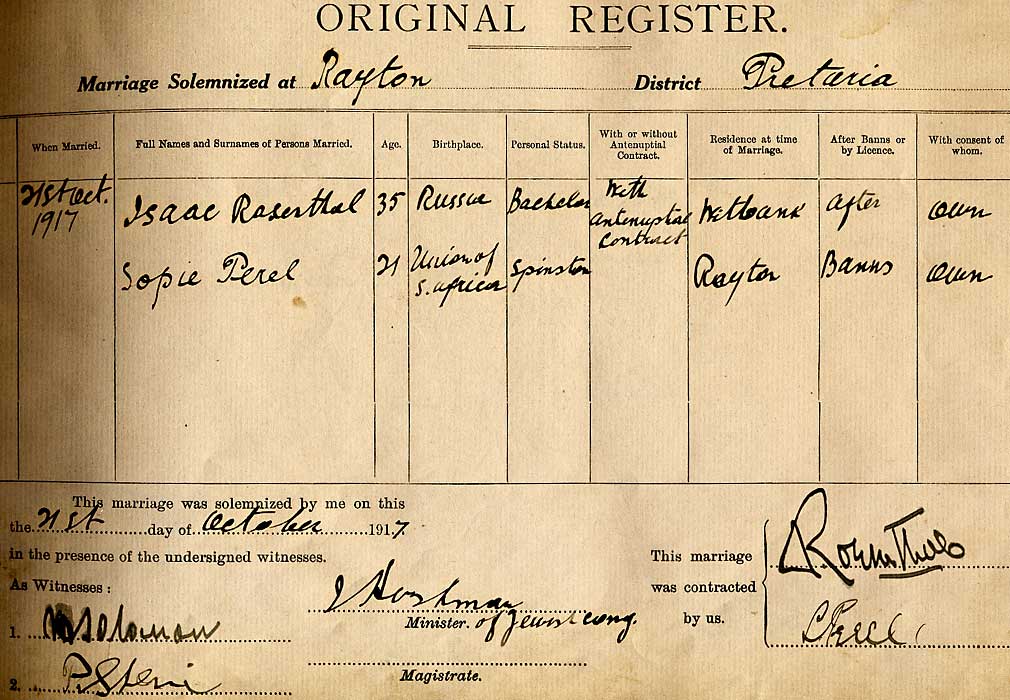 ORIGINAL REGISTER.
Marriage Solemnized at Rayton District Pretoria
When Married. Full Names and Surnames of Persons Married. Age. Birthplace. Personal Status. With or without Antenuptial Contract. Residence at time of Marriage. After Banns or by Licence. With consent of whom.
21st Oct. 1917 Isaac Rosenthal 35 Russia Bachelor With antenuptial contract Witbank After own
Sopie Perel 21 Union of S. Africa Spinster Rayton Banns own
This marriage was solemnized by me on this
the 21st day of October 1917
in the presence of the undersigned witnesses.
As Witnesses:
1. Solomon
2. P.
J Horstman
Minister. of Jewish cong.
Magistrate.
This marriage
was contracted
by us.
Rosenthal
S Perel